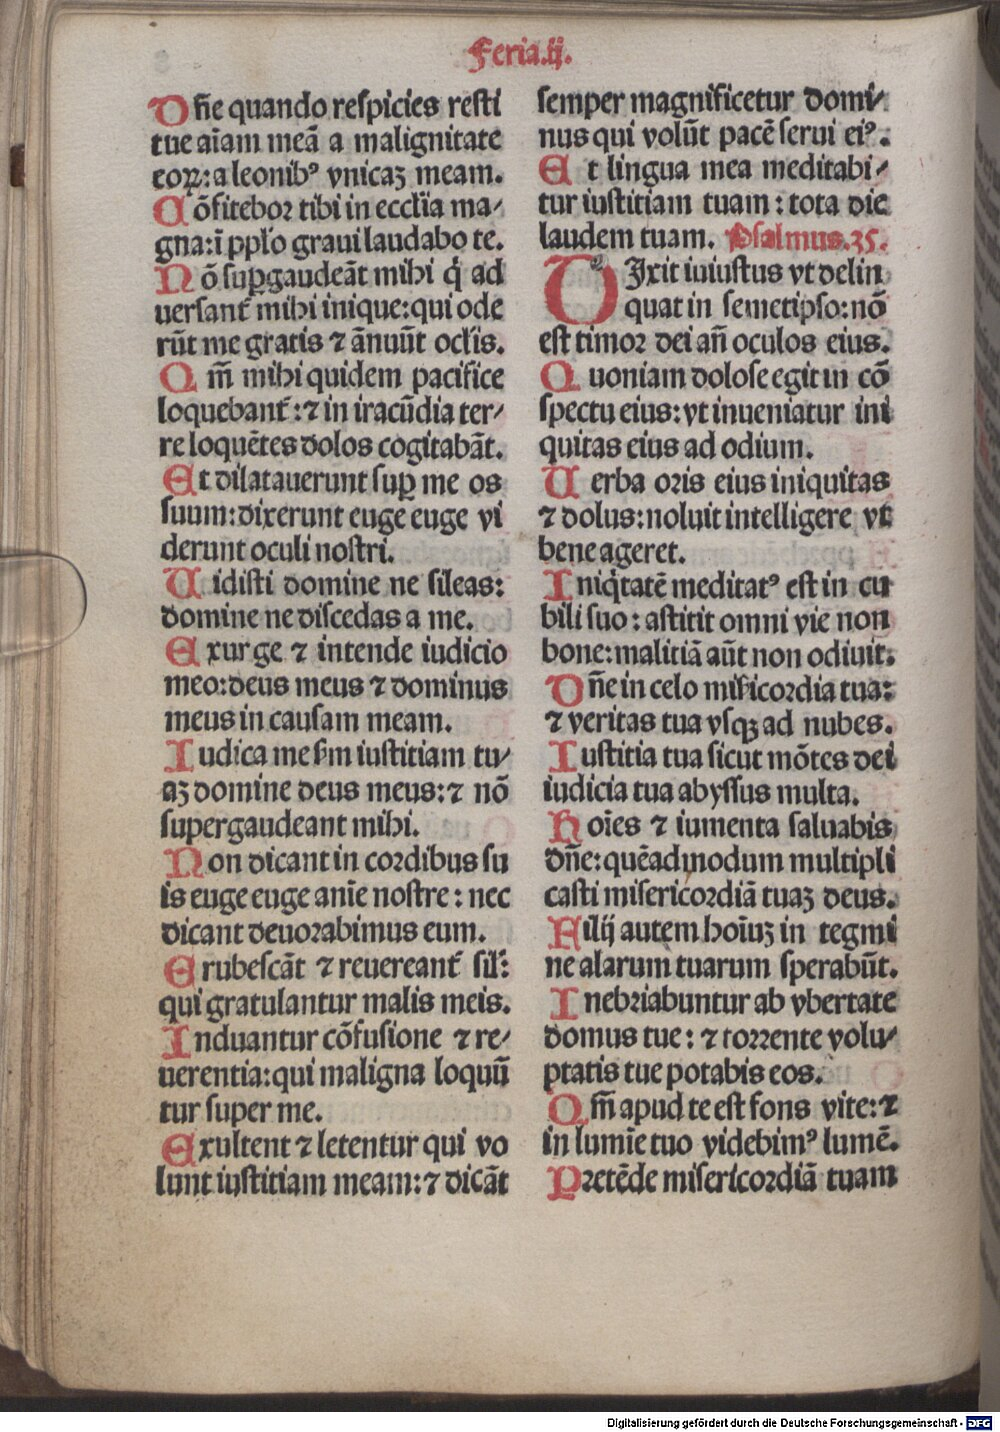 Feria.ij.
Dn̄e quando respicies resti
tue aīam meā a malignitate
eoꝝ: a leonibꝰ vnicaꝫ meam.
Cōfitebor tibi in ecclīa ma⸗
gna: ī pplo graui laudabo te.
Nō suꝑgaudeāt mihi q̇ ad
uersant̄ mihi inique: qui ode
rūt me gratis ⁊ ānuūt oclis.
Qm̄ mihi quidem pacifice
loquebant̄: ⁊ in iracūdia ter⸗
re loquētes dolos cogitabāt.
Et dilatauerunt suꝑ me os
suum: dixerunt euge euge vi
derunt oculi nostri.
Uidisti domine ne sileas:
domine ne discedas a me.
Exurge ⁊ intende iudicio
meo: deus meus ⁊ dominus
meus in causam meam.
Iudica me sm iustitiam tu⸗
aꝫ domine deus meus: ⁊ nō
supergaudeant mihi.
Non dicant in cordibus su
is euge euge anīe nostre: nec
dicant deuorabimus eum.
Erubescāt ⁊ reuereant̄ sil:
qui gratulantur malis meis.
Induantur cōfusione ⁊ re⸗
uerentia: qui maligna loquū
tur super me.
Exultent ⁊ letentur qui vo
lunt iustitiam meam: ⁊ dicāt
semper magnificetur domi⸗
nus qui volūt pacē serui eiꝰ.
Et lingua mea meditabi⸗
tur iustitiam tuam: tota die
laudem tuam. Psalmus.35.
DIxit iniustus vt delin
quat in semetipso: nō
est timor dei an̄ oculos eius.
Quoniam dolose egit in cō
spectu eius: vt inueniatur ini
quitas eius ad odium.
Uerba oris eius iniquitas
⁊ dolus: noluit intelligere vt
bene ageret.
Iniq̇tatē meditatꝰ est in cu
bili suo: astitit omni vie non
bone: malitiā aūt non odiuit.
Dn̄e in celo mīsicordia tua:
⁊ veritas tua vsqꝫ ad nubes.
Iustitia tua sicut mōtes dei
iudicia tua abyssus multa.
Hoīes ⁊ iumenta saluabis
dn̄e: quēadmodum multipli
casti misericordiā tuaꝫ deus.
Filij autem hoīuꝫ in tegmi
ne alarum tuarum sperabūt.
Inebriabuntur ab vbertate
domus tue: ⁊ torrente volu⸗
ptatis tue potabis eos.
Qm̄ apud te est fons vite: ⁊
in lumīe tuo videbimꝰ lumē.
Pretēde misericordiā tuam
Digitalisierung gefördert durch die Deutsche Forschungsgemeinschaft - DFG